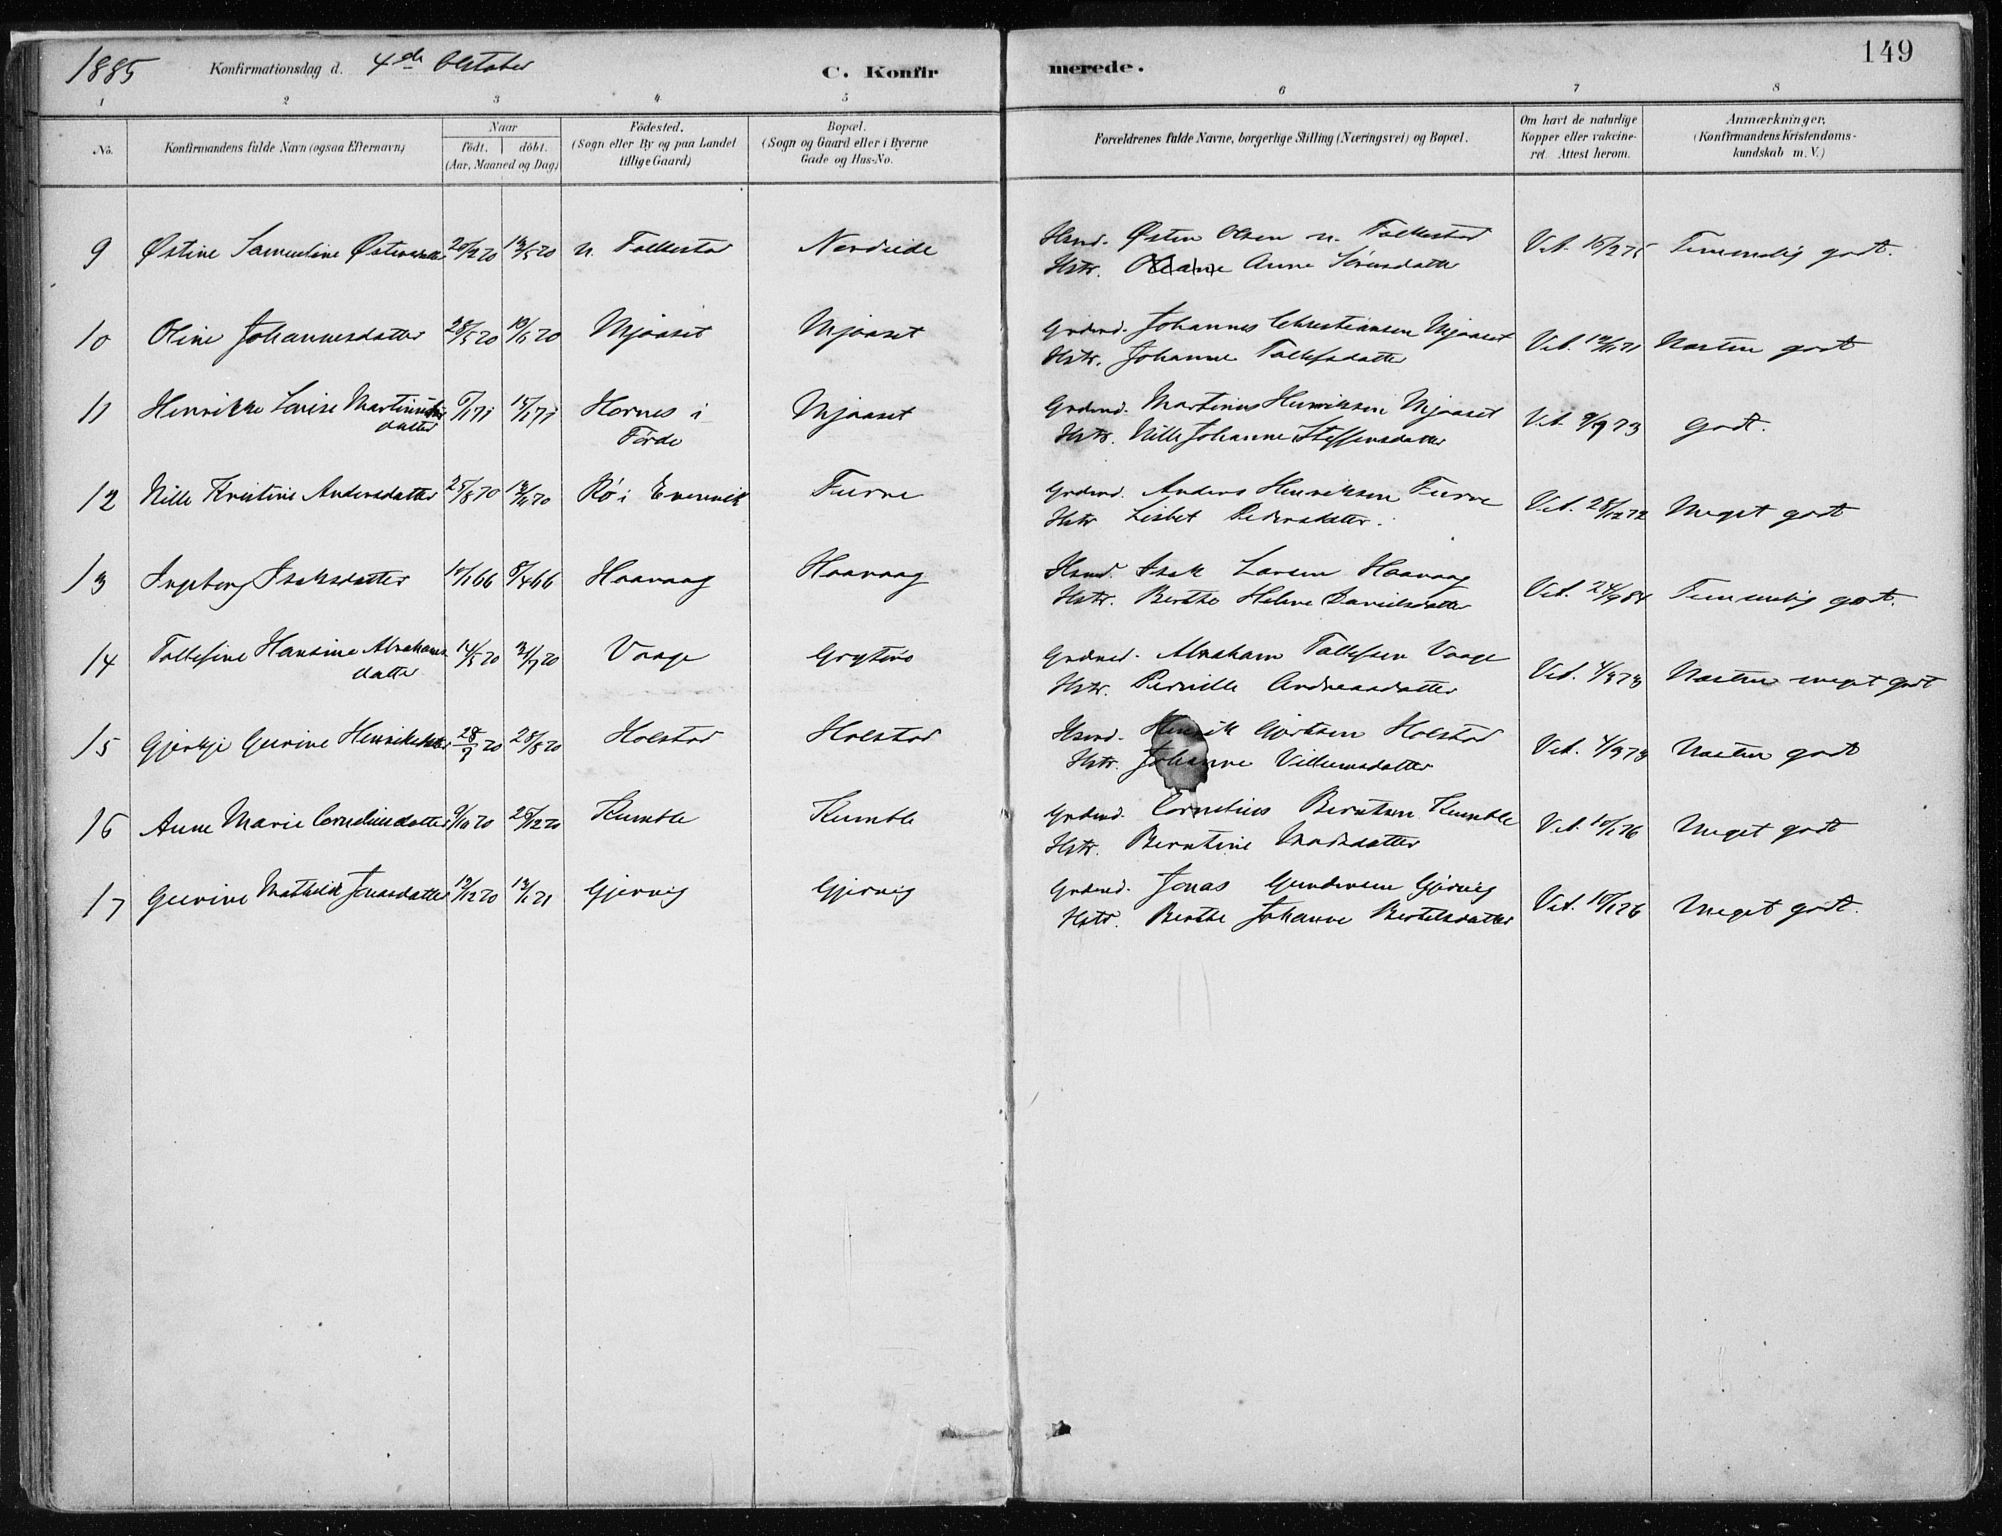 1885 Konfirmationsdag d. 4de Oktober C. Konfir merede. 149
1 2 3 4 5 6 7 8
No.
Konfirmandens fulde Navn (ogsaa Efternavn)
Naar
födt. döbt.
(Aar, Maaned og Dag)
Födested.
(Sogn eller By og paa Landet
tillige Gaard)
Bopæl.
(Sogn og Gaard eller i Byerne
Gade og Hus-No.
Forældrenes fulde Navne, borgerlige Stilling (Næringsvei) og Bopæl.
Om havt de naturlige
Kopper eller vakcine-
ret. Attest herom.
Anmærkninger,
(Konfirmandens Kristendoms-
kundskab m. V.)
9 Østine Samueline Østensdatter 20/2 70 13/5 70 n. Folkestad Nordeide Hsmd. Østen Olsen n. Folkestad Vet. 15/9 75 Temmelig godt.
Hstr. Anne Sørensdatter
10 Oline Johannesdatter 28/5 70 19/6 70 Mjaaset Mjaaset Grdmd. Johannes Christiansen Mjaaset Vet. 19/11 71 Næsten godt
Hstr. Johanne Tollefsdatter
11 Henrikke Lovise Martinus 6/1 71 15/1 71 Hornes i Mjaaset Grdmd. Martinus Henriksen Mjaaset Vet. 9/9 73 godt.
datter Förde Hstr. Nille Johanne Steffensdatter
12 Nille Kristine Andersdatter 25/8 70 13/11 70 Rø i Evenvik Furve Grdmd. Anders Henriksen Furve Vet. 28/12 72 Meget godt
Hstr Lisbet Pedersdatter.
13 Ingeborg Isaksdatter 10/1 66 8/4 66 Haavaag Haavaag Hsmd. Isak Larsen Haavaag Vet. 24/9 84 Temmelig godt.
Hstr. Berthe Helene Danielsdatter
14 Tollefine Hansine Abrahams 14/5 70 31/7 70 Vaage Grytøs Grdmd. Abraham Tollefsen Vaage Vet. 4/9 73 Næsten meget godt
datter Hstr. Pernille Andreasdatter
15 Gjertje Gurine Henriksdatter 28/3 70 28/8 70 Holstad Holstad Hsmd. Henrik Gjertsen Holstad Vet. 4/9 73 Næsten godt
Hstr. Johanne Villumsdatter
16 Anne Marie Corneliusdatter 9/10 70 25/12 70 Kumble Kumble Grdmd. Cornelius Berntsen Kumble Vet. 10/1 76 Meget godt
Hstr. Berntine Madsdatter
17 Gurine Mathilde Jonasdatter 12/12 70 13/1 71 Gjervig Gjervig Grdmd. Jonas Gundersen Gjervig Vet. 10/1 76 Meget godt.
Hstr. Berthe Johanne Bertelsdatter